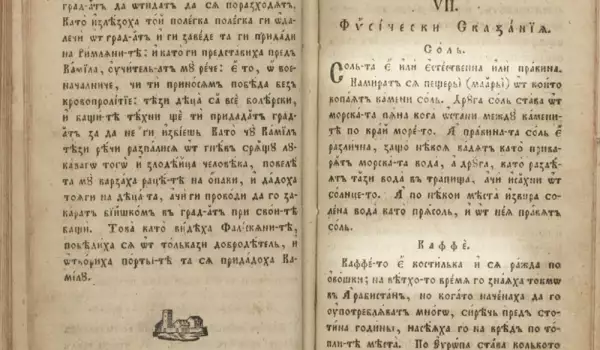 град-а́тъ да ѿтидатъ да сѧ поразходѧтъ.
Като излѣзоха той полегка полегка ги ѿдале-
чи ѿт град-а́тъ и ги заведе та ги придади
на Римлѧни-тѣ: и като ги представиха предъ
Камі́ла, оучитель-атъ му рече: Е҆ то, ѿ вое-
началниче, чи ти приносямъ победа безъ
кровопроли́тіе: тѣзи дѣца са всѐ болѣрски,
и бащи-тѣ тѣхни ще ти придадатъ град-
атъ за да не ги избіешъ Като чу Каміл
тѣзи рѣчи разпалисѧ ѿт гнѣвъ срѧщу лу-
каваго того и злодѣица человѣка, повелѣ
та му варзаха рацѣ-тѣ на опаки, и дадоха
тоѧги на дѣца та, ачи ги проводи да го за-
каратъ біишкомъ въ град-атъ при свои-тѣ
бащи. Това като видѣха Фалискѧни-тѣ,
побѣдиха сѧ ѿт толькази добродѣтель, и
ѿтвориха порты-тѣ та сѧ придадоха Ка-
мі́лу.
VII.
Фѵсі́чески Сказа́нїѧ.
Со́ль.
Соль-та Е҆ или Е҆стественна или правина.
Намиратъ сѧ пещеры (маары) ѿт които
копаѧтъ камени соль. Друга соль става ѿт
морска-та пѧна кога ѿтани между камени-
тѣ по край море-то. А правина-та соль Е҆
различна, защо нѣкоѧ вадѧтъ като прива-
рѧтъ морска-та вода, а друга, като раздѣ-
ѧтъ тази вода въ трапища, ачи исахни ѿт
солнце-то. А по нѣкои мѣста извира со-
лена вода като прѧсолъ, и ѿт неѧ правѧтъ
соль.
Каффѐ.
Каффе-то Е҆ костилька и сѧ ражда по
овошки; на ветхо-то времѧ го знаѧха токмѡ
въ Арабистанъ, но когато наченаха да го
оупотреблѧватъ многѡ, сирѣчь предъ сто-
тина годины, насѣѧха го на вредъ по то-
пли-тѣ мѣста. По Еѵрѡпа става кольвото